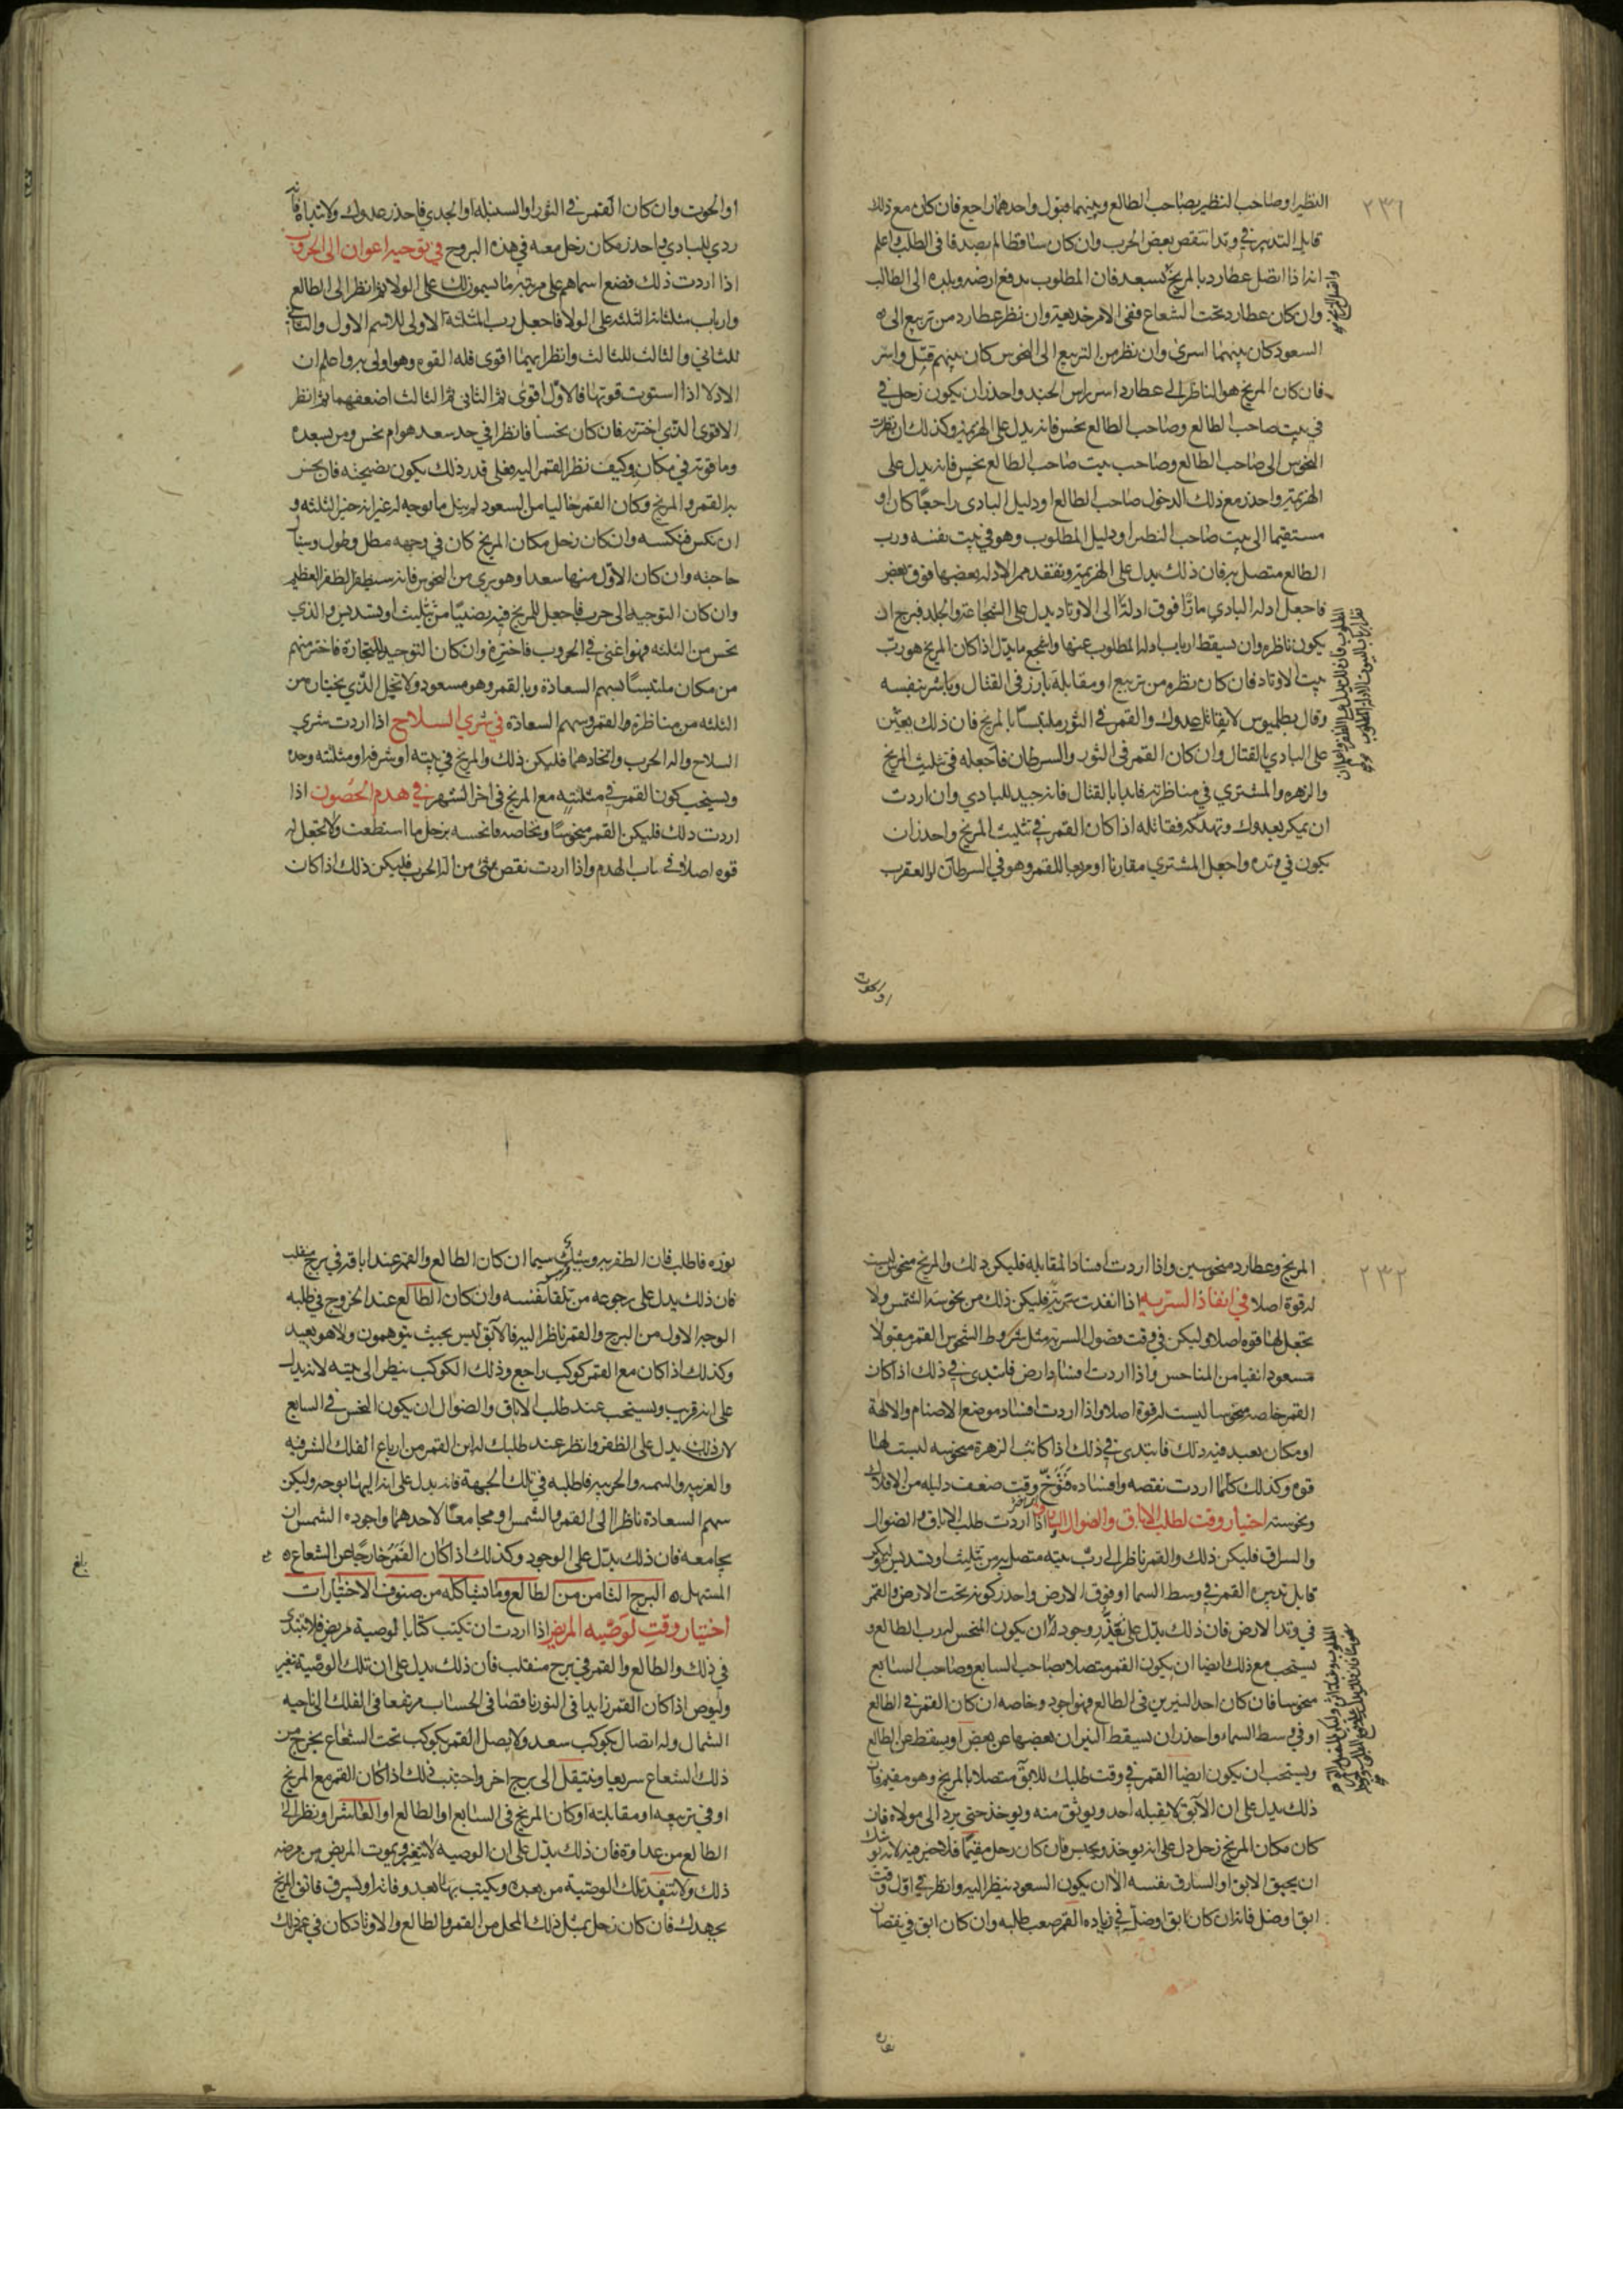 ٢٣١
النظير او صاحب النظير بصاحب الطالع وبينهما قبول واحدهما راجع فان كان مع ذلك
قابل التدبير في وتد انتقص بعض الحرب وان كان ساقطا لم يصدقا في الطلب واعلم
انه اذا اتصل عطارد بالمريخ بسعد فان المطلوب يدفع ارضه وبلده الى الطالب
وان كان عطارد تحت الشعاع ففي الامر خديعة وان نظر عطارد من تربيع الى
السعود كان بينهما اسرى وان نظر من التربيع الى النحوس كان بينهم قتل واسر
فان كان المريخ هو الناظر الى عطارد اسر راس الجند واحذر ان يكون زحل في
في بيت صاحب الطالع وصاحب الطالع نحس فانه يدل على الهزيمة وكذلك ان نظرت
النحوس الى صاحب الطالع وصاحب بيت صاحب الطالع نحس فانه يدل على
الهزيمة واحذر مع ذلك الدخول صاحب الطالع او دليل البادي راجعا كان او
مستقيما الى بيت صاحب النظير او دليل المطلوب وهو في بيت نفسه ورب
الطالع متصل به فان ذلك يدل على الهزيمة وتفقد ممر الادله بعضها فوق بعض
فاحعل ادله البادي مارّا فوق ادله الى الاوتاد يدل على الشجاعة والجلد فبرج ان
يكون ناظره وان سيقط ارباب ادله المطلوب عنها واشجع ما يدل اذا كان المريخ هو ربّ
بيت الاوتاد فان كان نظره من تربيع او مقابلة بارز في القتال وباشر بنفسه
وقال بطلميوس لا يقاتل عدوك والقمر في الثور ملتبسا بالمريخ فان ذلك يعين
على البادي بالقتال وان كان القمر في الثور والسرطان فاجعله في تثليث المريخ
والزهره والمشتري في مناظرته فابدا بالقتال فانه جيد للبادي وان اردت
ان تمكر بعدوك وتهلكه فقاتله اذا كان القمر في تثليث المريخ واحذر ان
يكون في وتده واجعل المشتري مقارنا او مربعا للقمر وهو في السرطان او العقرب
او الحوت
او الحوت وان كان القمر في الثور او السنبله او الجدي فاحذر عدوك ولا تبداه فانه
ردي للبادي واحذر مكان زحل معه في هذه البروج في توجيه اعوان الى الحرب
اذا اردت ذلك فضع اسماهم على مرتبة ما تسمون لك على الولا ثم انظر الى الطالع
وارباب مثلثاته الثلثه على الولا فاجعل رب المثلثة الاولى للاسم الاول والثاني
للثاني والثالث للثالث وانظر ايهما اقوى فله القوه وهو اولى به واعلم ان
الادلا اذا استوت قوتها فالاول اقوى ثم الثاني ثم الثالث اضعفهما ثم انظر
الاقوى الذي اخترته فان كان نحسا فانظر في حد سعد هو ام نحس ومن يسعده
وما قوته في مكانه وكيف نظر القمر اليه فعلى قدر ذلك يكون نصيحته فان نحس
به القمر والمريخ وكان القمر خاليا من السعود لم ينل ما توجه له غير انه خير الثلثه و
ان نكس فنكسه وان كان زحل مكان المريخ كان في وجهه مطل وطول وسيا
حاجته وان كان الاول منها سعدا وهو بري من النحوس فانه سيظفر الظفر العظيم
وان كان التوجيه الى حرب فاجعل للمريخ فيه نصيبا من تثليث او تسديس والذي
نحس من الثلثه فهو اغنى في الحروب فاختره وان كان التوجيه للتجارة فاختر منهم
من مكان ملتبسا بسهم السعادة وبالقمر وهو مسعود ولا تخل الذي يختار من
الثلثه من مناظرة والقمر وسهم السعادة في شري السلاح اذا اردت شري
السلاح واله الحرب واتخادهما فليكن ذلك والمريخ في بيته او شرفه او مثلثته وحده
ويستحب كون القمر في مثلثته مع المريخ في اخر الشهر في هدم الحصون اذا
اردت ذلك فليكن القمر منحوسا وبخاصه فانحسه بزحل ما استطعت ولا تجعل له
قوه اصلا في باب الهدم واذا اردت نقص شئ من اله الحرب فليكن ذلك اذا كان
٢٣٢
المريخ وعطارد منحوسين واذا اردت افساد المقابله فليكن ذلك والمريخ منحوس ليست
له قوة اصلا في انفاذ السرية اذا انفدت سرية فليكن ذلك من نحوسة الشمس ولا
تجعل لها قوه اصلا وليكن في وقت فضول السرية مثل شروط الشخوص القمر مقبولا
مسعودا نقيا من المناحس واذا اردت افساد ارض فابتدى في ذلك اذا كان
القمر خاصه منحوسا ليست له قوة اصلا واذا اردت افساد موضع الاصنام والالهة
او مكان يعبد فيه ذلك فابتدى في ذلك اذا كانت الزهرة منحوسه ليست لها
قوه وكذلك كلما اردت نقصه وافساده فتوخّ وقت ضعف دليله من الافلاك
ونحوسته اختيار وقت لطلب الاباق والضوال اذا اردت طلب الاباق والضوال
والسراق فليكن ذلك والقمر ناظر الى ربّ بيته متصل به من تثليث او تسديس وليكن
قابل تدبيره القمر في وسط السما او فوق الارض واحذر كونه تحت الارض والقمر
في وتد الارض فان ذلك يدل على تعذر وجوده الا ان يكون المنحس له رب الطالع و
يستحب مع ذلك ايضا ان يكون القمر متصلا بصاحب السابع وصاحب السابع
منحوسا فان كان احد النيرين في الطالع فهو اجود وخاصه ان كان القمر في الطالع
او في وسط السماء واحذر ان يسقط النيران بعضها عن بعض او يسقط عن الطالع
ويستحب ان يكون ايضا القمر في وقت طلبك للابق متصلا بالمريخ وهو مقيم فان
ذلك يدل على ان الآبق لا يقبله احد ويوثق منه ويوخذ حتى يرد الى مولاه فان
كان مكان المريخ زحل دل على انه يوخذ ويحبس فان كان زحل مقيما فلا خير فيه لانه يوشك
ان يخنق الابق او السارق نفسه الا ان يكون السعود ينظر اليه وانظر في اوّل وقت
ابق او ضل فانه ان كان ابق او ضلّ في زياده القمر صعب طلبه وان كان ابق في نقصان
نوره
نوره فاطلب فان الظفر به وشيك سيما ان كان الطالع والقمر عند اباقه في برج منقلب
فان ذلك يدل على رجوعه من تلقا نفسه وان كان الطالع عند الخروج في طلبه
الوجه الاول من البرج والقمر ناظرا اليه فالآبق ليس بحيث يتوهمون ولا هو بعيد
وكذلك اذا كان مع القمر كوكب راجع وذلك الكوكب ينظر الى بيته لانه يدل
على انه قريب ويستحب عند طلب الاباق والضوال ان يكون النحس في السابع
لان ذلك يدل على الظفر وانظر عند طلبك له اين القمر من ارباع الفلك الشرقيه
والغربيه والسميه والجربيه فاطلبه في تلك الجهة فانه يدل على انه اليها توجه وليكن
سهم السعادة ناظرا الى القمر والشمس او مجامعا لاحدهما واجوده الشمس ان
يجامعه فان ذلك يدل على الوجود وكذلك اذا كان القمر خارجا عن الشعاع
المستهل البرج الثامن من الطالع وما تشاكله من صنوف الاختيارات
اختيار وقت لوصيه المريض اذا اردت ان تكتب كتابا لوصية مريض فلا تبتدى
في ذلك والطالع والقمر في برج منقلب فان ذلك يدل على ان تلك الوصية تغير
وليوص اذا كان القمر زايدا في النور ناقصا في الحساب مرتفعا في الفلك الى ناحيه
الشمال وله اتصال بكوكب سعد ولا يصل القمر بكوكب تحت الشعاع يخرج من
ذلك الشعاع سريعا وينتقل الى برج اخر واجتنب في ذلك اذا كان القمر مع المريخ
او في تربيعه او مقابلته او كان المريخ في السابع او الطالع او العاشر او نظر الى
الطالع من عداوة فان ذلك يدل على ان الوصيه لا تتغير ويموت المريض من مرضه
ذلك ولا تنفذ تلك الوصية من بعده ويكتب بها بعد وفاته او تسرق فاتق المريخ
بجهدك فان كان زحل بمثل ذلك المحل من القمر والطالع والاوتاد كان في ذلك
بلغ